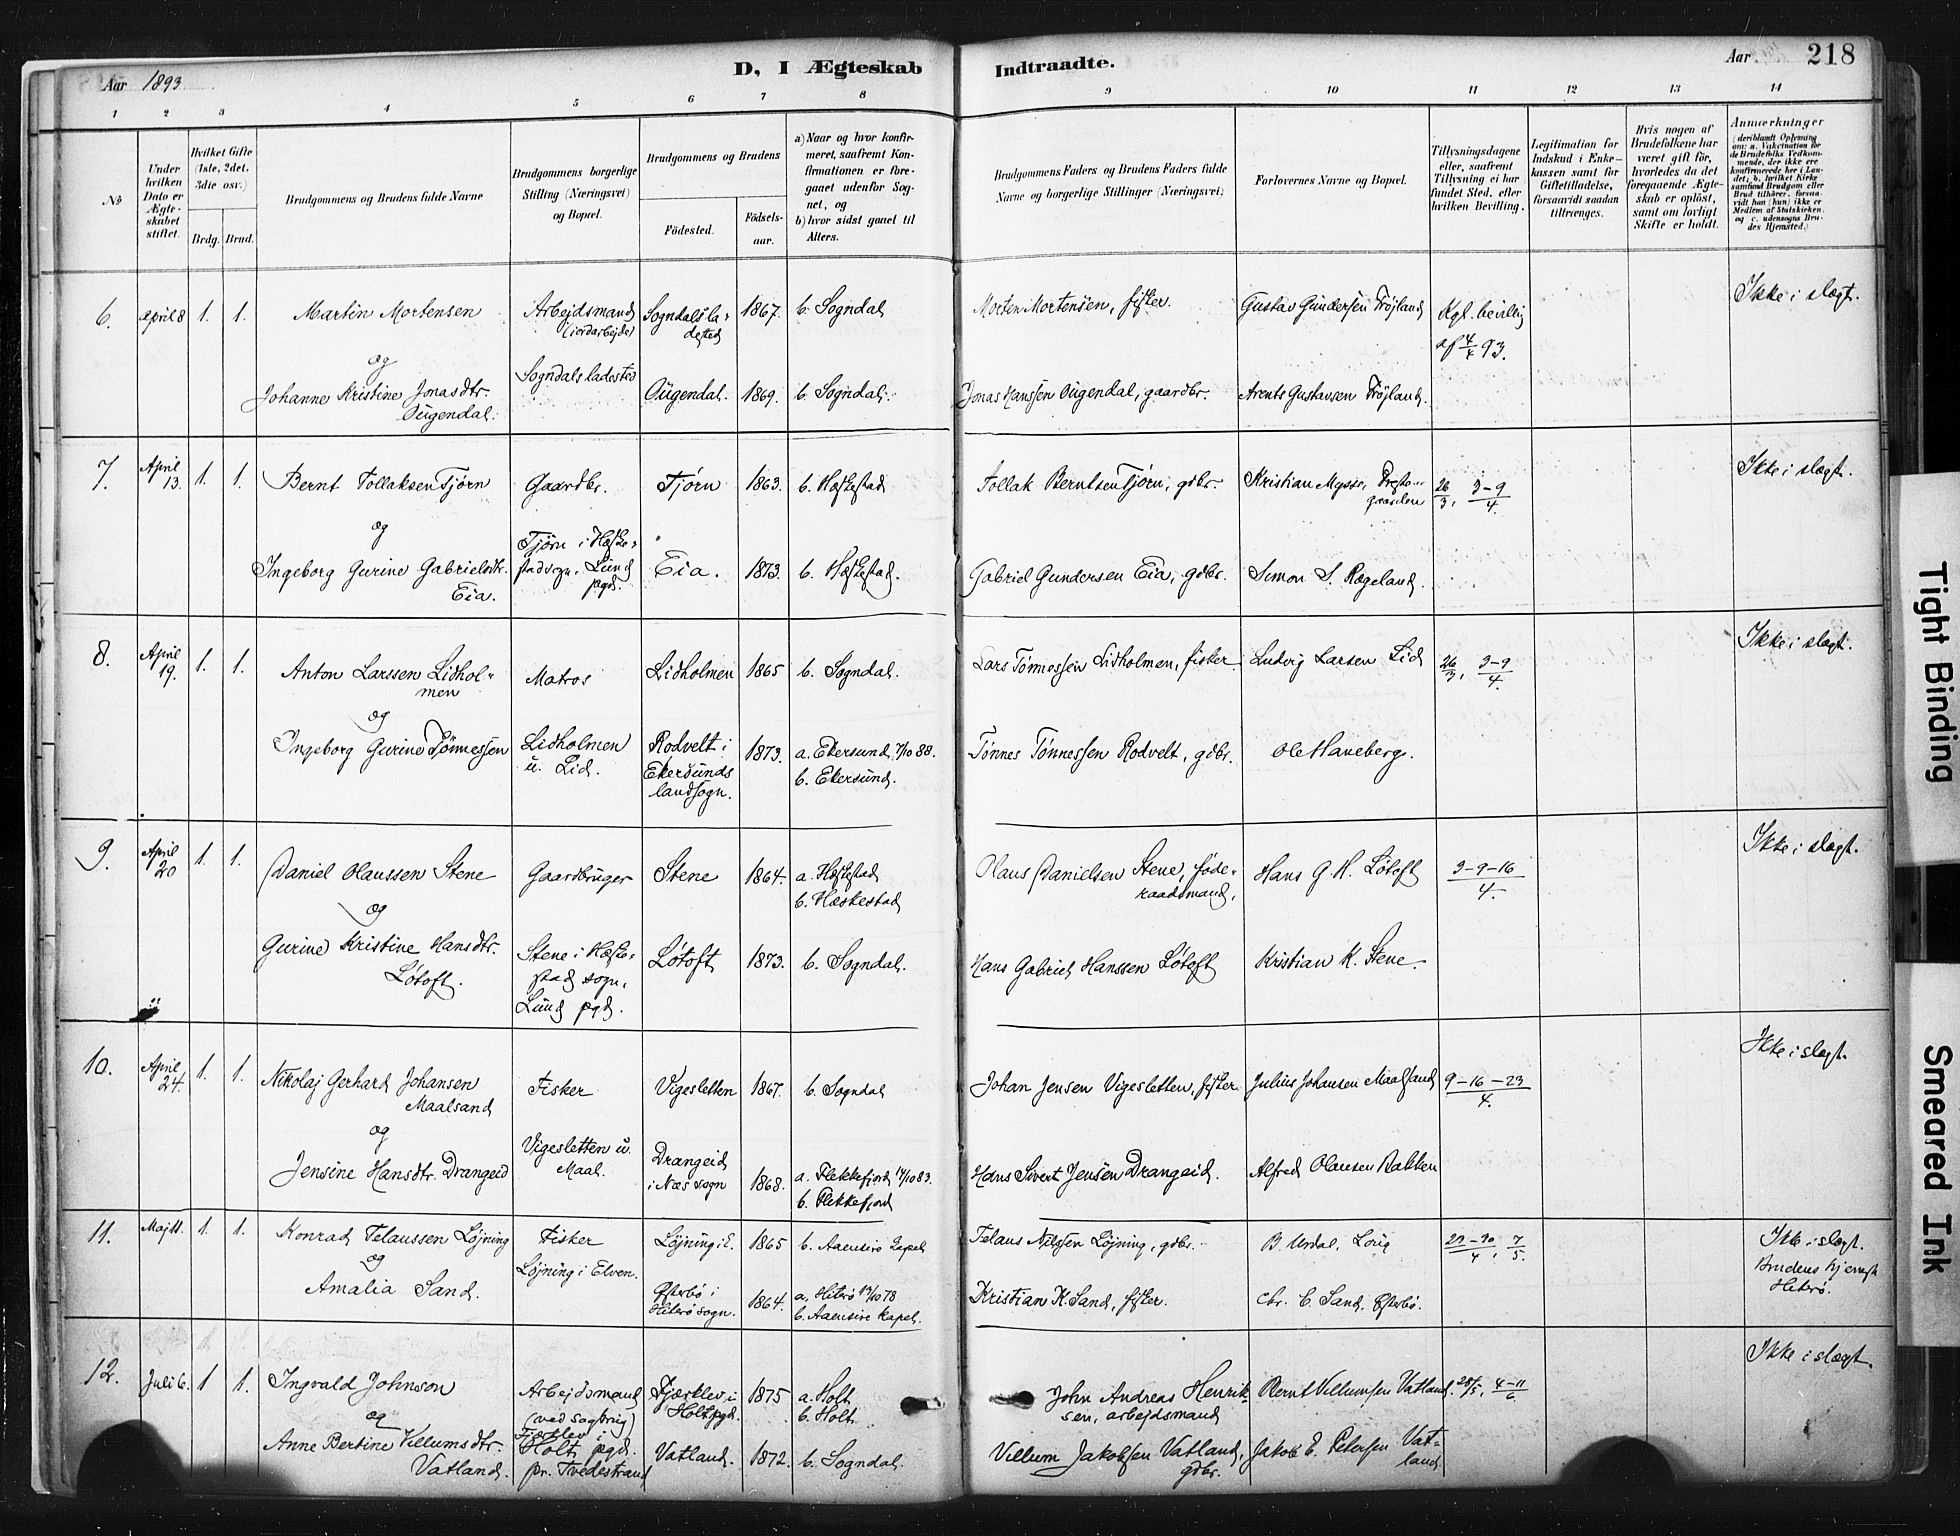 Aar 1893
D, I Ægteskab Indtraadte.
Aar
218
1 2 3 4 5 6 7 8 9 10 11 12 13 14
No
Under hvilken Dato er Ægteskabet stiftet.
Hvilket Gifte (1ste, 2det. 3die osv.)
Brdg. Brud.
Brudgommens og Brudens fulde Navne
Brudgommens borgerlige Stilling (Næringsvei) og Bopæl.
Brudgommens og Brudens
Födested.
Födsels-aar.
a) Naar og hvor konfirmeret, saafremt Konfirmationen er foregaaet udenfor Sognet, og
b) hvor sidst gaaet til Alters.
Brudgommens Faders og Brudens Faders fulde Navne og borgerlige Stillinger (Næringsvei)
Forlovernes Navne og Bopæl.
Tillysningsdagene eller, saafremt Tillysning ei har fundet Sted, efter hvilken Bevilling.
Legitimation for Indskud i Enkekassen samt for Giftetilladelse, forsaavidt saadan tiltrænges.
Hvis nogen af Brudefolkene har været gift för, hvorledes da det foregaaende Ægteskab er oplöst, samt om lovligt Skifte er holdt.
Anmærkninger
(deriblandt Oplysning om: a. Vakcination for de Brudefolks Vedkommende, der ikke ere konfirmerede her i Landet; b. hvilket Kirkesamfund Brudgom eller Brud tilhörer, forsaavidt han (hun) ikke er Medlem af Statskirken, og c. udensogns Brudes Hjemsted.)
6. April 8 1. 1. Martin Mortensen
Arbejdsmand (jordarbejde)
Sogndalsladested 1867. b. Sogndal
Morten Mortensen, fisker.
Gustav Gundersen Frøjland
Kgl. bevillig af 4/4 93.
Ikke i slægt.
og
Johanne Kristine Jonasdtr. Ougendal.
Sogndals ladested
Ougendal. 1869. b. Sogndal.
Jonas Hanssen Ougendal, gaardbr.
Arents Gustavsen Frøjland.
7. April 13. 1. 1. Bernt Tollaksen Tjørn
Gaardbr.
Tjørn 1863. b. Hæskestad
Tollak Berntsen Tjørn, gdbr.
Kristian Mysse, Prestegaarden
26/3, 3-9/4.
Ikke i slægt.
og
Ingeborg Gurine Gabrielsdtr. Eia.
Tjørn i Hæskestad sogn, Lund pgd.
Eia. 1873. b. Hæskestad.
Gabriel Gundersen Eia, gdbr.
Simon S. Rægeland.
8. April 19. 1. 1. Anton Larssen Lidholmen
Matros
Lidholmen 1865 b. Sogndal.
Lars Tønnessen Lidholmen, fisker
Ludvig Larsen Lid
26/3, 3-9/4.
Ikke i slægt.
og
Ingeborg Gurine Tønnessen
Lidholmen u. Lid.
Rodvelt i Ekersunds landsogn. 1873. a. Ekersund, 7/10 88.
b. Ekersund.
Tønnes Tønnessen Rodvelt, gdbr.
Ole Haneberg.
9. April 20 1. 1. Daniel Olaussen Stene
Gaardbruger
Stene 1864. a. Hæskestad
b. Hæskestad
Olaus Danielsen Stene, føderaadsmand,
Hans G. H. Løtoft
3-9-16/4.
Ikke i slægt.
og
Gurine Kristine Hansdtr. Løtoft.
Stene i Hæskestad sogn, Lund pgd.
Løtoft 1873. b. Sogndal.
Hans Gabriel Hanssen Løtoft
Kristian K. Stene.
10. April 24. 1. 1. Nikolaj Gerhard Johansen Maalsand
Fisker
Vigesletten 1867. b. Sogndal
Johan Jensen Vigesletten, fisker
Julius Johansen Maalsand
9-16-23/4.
Ikke i slægt.
og
Jensine Hansdtr. Drangeid
Vigesletten u. Maal.
Drangeid i Næs sogn 1868. a. Flekkefjord 14/10 83.
b. Flekkefjord
Hans Sivert Jensen Drangeid.
Alfred Olausen Bakken
11. Maj 11. 1. 1. Konrad Telaussen Løjning
Fisker
Løjning i E. 1865 b. Aaensire Kapel
Telaus Nilssen Løjning, gdbr.
B. Urdal,
23-30/4, 7/5
Ikke i slægt.
Brudens hjemst. Hiterø.
og
Amalia Sand.
Løjning i Elven.
Østerbø i Hiterø sogn. 1864. a. Hiterø 13/10 78
b. Aaensire kapel.
Kristian K. Sand, fisker.
Chr. C. Sand, Østerbø.
12. Juli 6. 1 1. Ingvald Johnson
Arbejdsmand (ved sagbrug)
Fjærklev i Holt pgd. 1875 a. Holt
b. Holt
John Andreas Henriksen, arbejdsmand
Bernt Villumsen Vatland.
28/5, 4-11/6
Ikke i slægt.
og
Anne Bertine Villumsdtr. Vatland.
Fjærklev i Holt pgd. pr. Tvedestrand
Vatland. 1872. b. Sogndal.
Villum Jakobsen Vatland, gdbr.
Jakob E. Petersen Vatland
Tight Binding
Smeared Ink